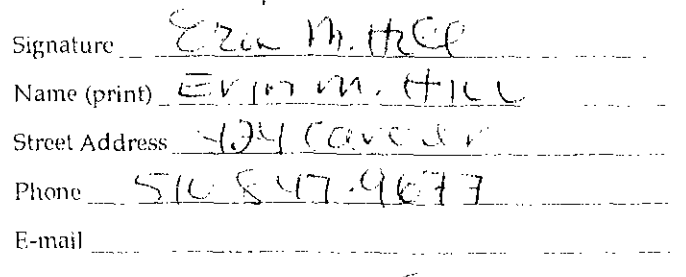 Signature Erin M. Hill
Name (print) Erin M. Hill
Street Address
Phone 510 847.9677
E-mail